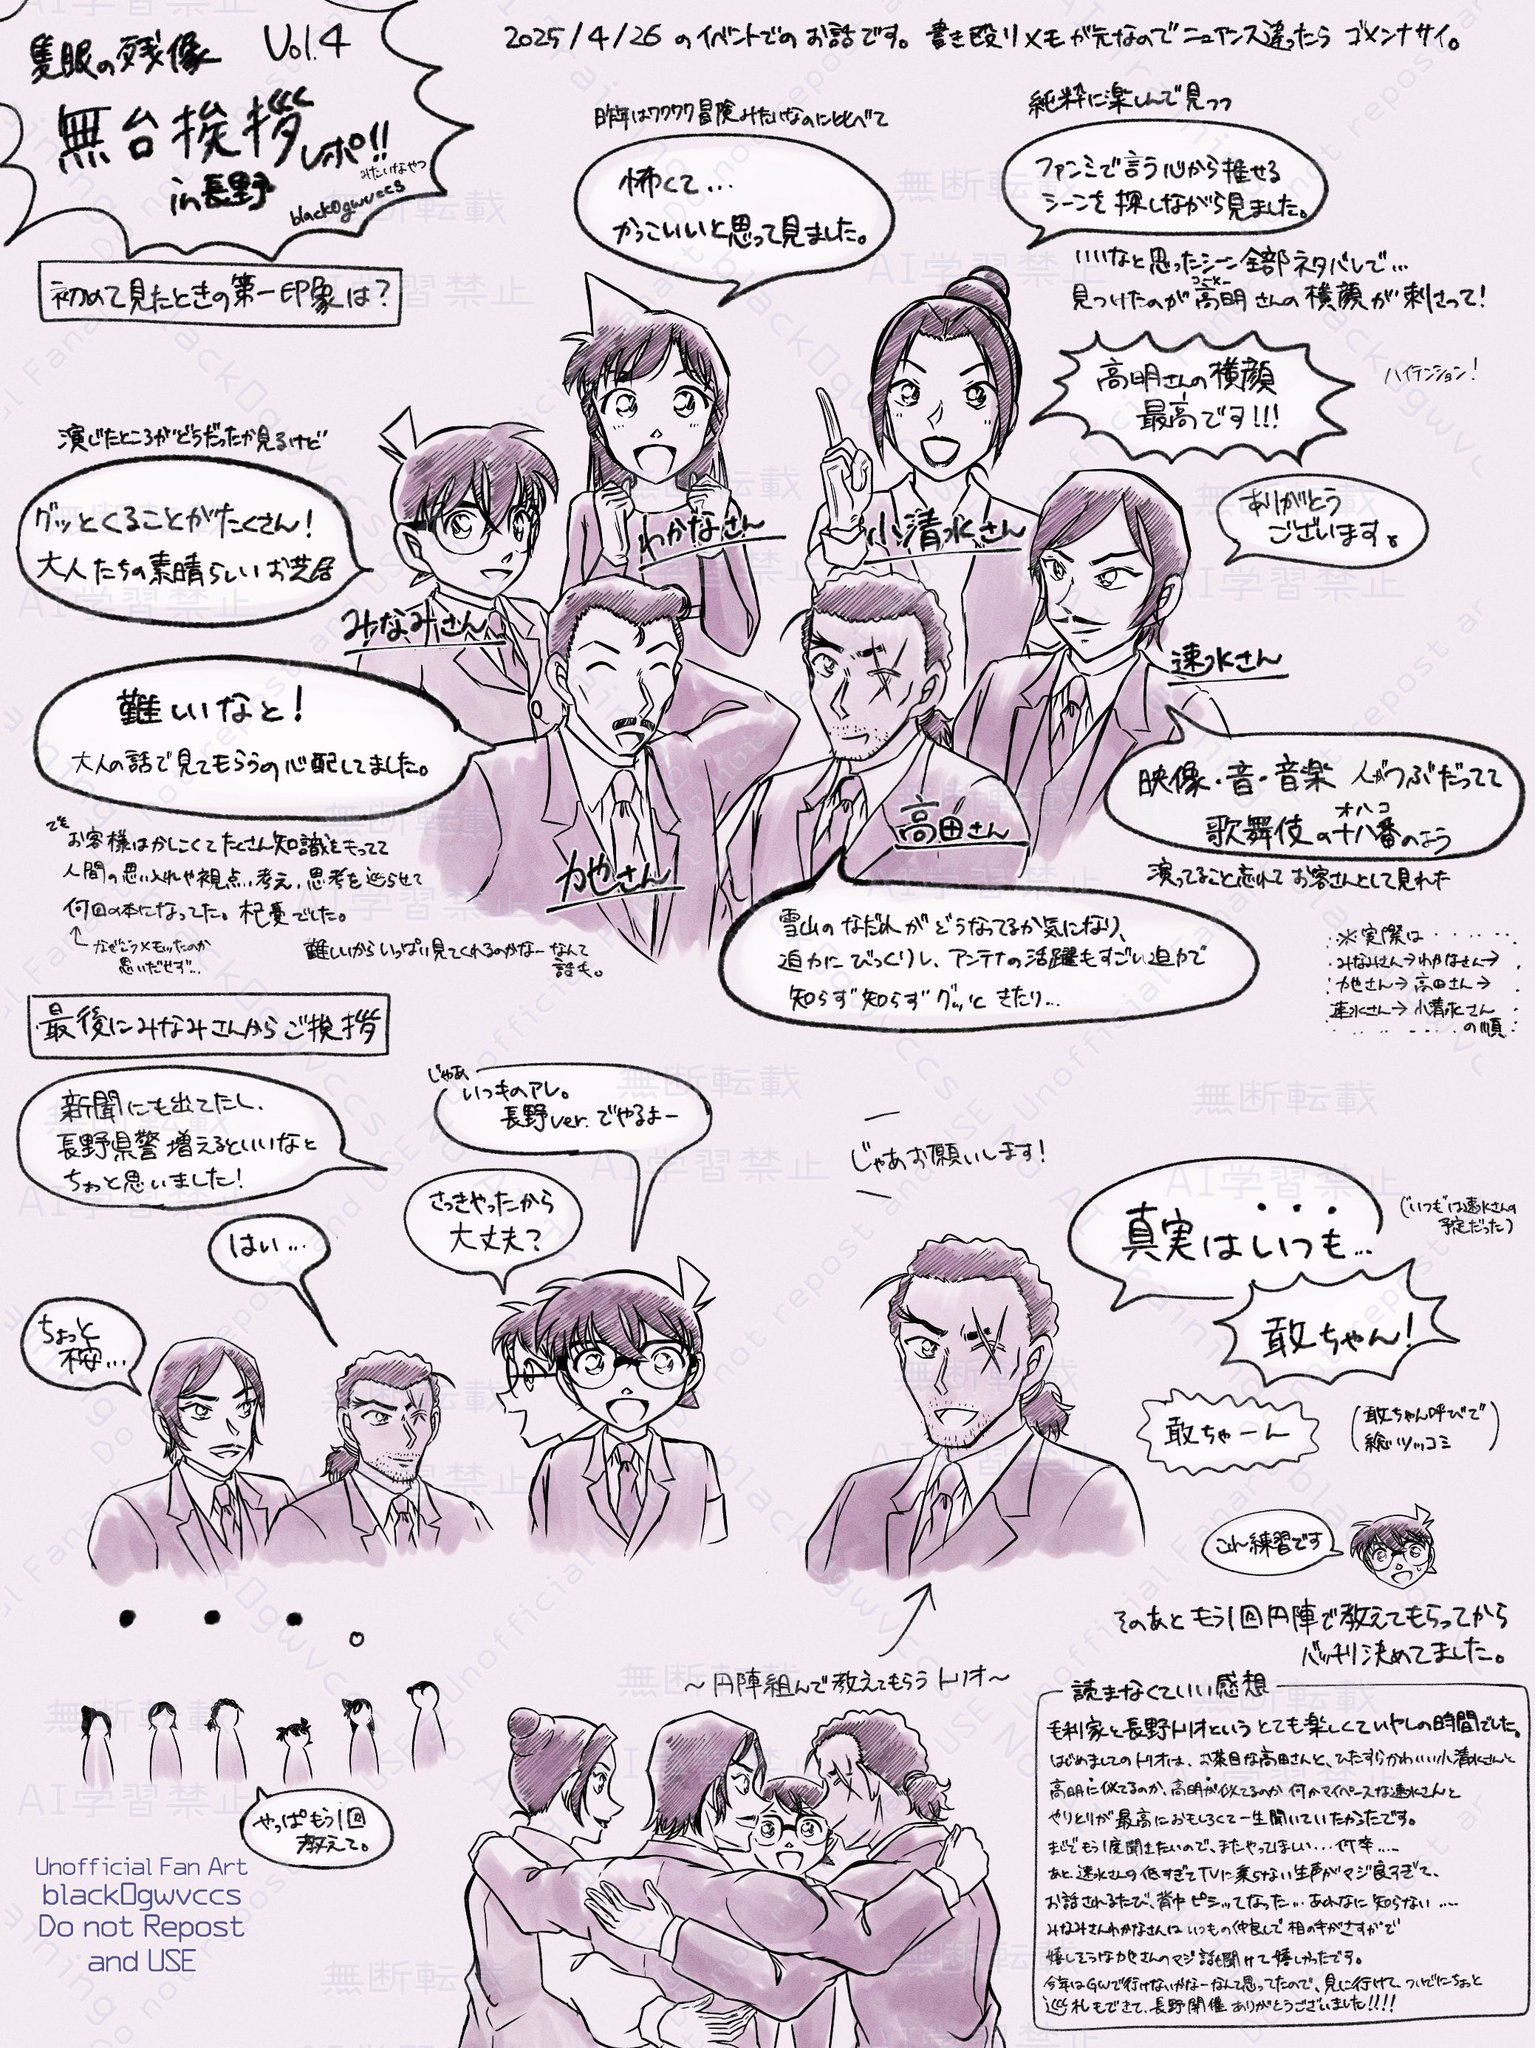 隻眼の残像 Vol.4
無台挨拶レポ!!
みたいなやつ
in長野
black0gwvccs
2025/4/26 のイベントでのお話です。書き殴りメモが元なのでニュアンス違ったら ゴメンナサイ。
初めて見たときの第一印象は?
昨年はワクワク冒険みたいなのに比べて
怖くて…
かっこいいと思って見ました。
純粋に楽しんで見つつ
ファンミで言う心から推せる
シーンを探しながら見ました。
いいなと思ったシーン全部ネタバレで…
見つけたのが高明さんの横顔が刺さって!
高明さんの横顔
最高です!!!
ハイテンション!
ありがとう
ございます。
演じたところがどうだったか見るけど
グッとくることがたくさん!
大人たちの素晴らしいお芝居
わかなさん
小清水さん
みなみさん
速水さん
難しいなと!
大人の話で見てもらうの心配してました。
でも
お客様はかしこくてたくさん知識をもってて
人間の思い入れや視点、考え、思考を巡らせて
何回の本になってた。杞憂でした。
なぜこうメモったのか
思いだせず…
難しいからいっぱい見てくれるのかなーなんて
話も。
力也さん
高田さん
映像・音・音楽 人がつぶだってて
オハコ
歌舞伎の十八番のよう
演ってること忘れてお客さんとして見れた
雪山のなだれがどうなってるか気になり、
迫力にびっくりし、アンテナの活躍もすごい迫力で
知らず知らずグッときたり…
※実際は
みなみさん→わかなさん→
力也さん→高田さん→
速水さん→小清水さん
の順
最後にみなみさんからご挨拶
新聞にも出てたし、
長野県警増えるといいなと
ちょっと思いました!
じゃあ
いつものアレ。
長野ver.でやるよー
はい…
さっきやったから
大丈夫?
ちょっと
桜…
じゃあお願いします!
真実はいつも…
("いつも"は速水さんの
予定だった)
敢ちゃん!
敢ちゃーん
(敢ちゃん呼びで
総ツッコミ)
これ練習です
そのあともう1回円陣で教えてもらってから
バッチリ決めてました。
・・・。
やっぱもう1回
教えて。
～円陣組んで教えてもらうトリオ～
読まなくていい感想
毛利家と長野トリオというとても楽しくていやしの時間でした。
はじめましてのトリオは、お茶目な高田さんと、ひたすらかわいい小清水さんと
高明に似てるのか、高明が似てるのか何かマイペースな速水さんと
やりとりが最高におもしろくて一生聞いていたかったです。
まじでもう1度聞きたいので、またやってほしい…何卒……
あと、速水さんの低すぎてTVに乗らない生声がマジ良すぎて、
お話されるたび、背中ピシッてなった…あれなに知らない……
みなみさんわかなさんはいつもの仲良しで相の手がさすがで
嬉しそうな力也さんのマジ話も聞けて嬉しかったです。
今年はGWで行けないかなーなんて思ってたので、見に行けて、ついでにちょっと
巡礼もできて、長野開催ありがとうございました!!!!
Unofficial Fan Art
black0gwvccs
Do not Repost
and USE
無断転載
AI学習禁止